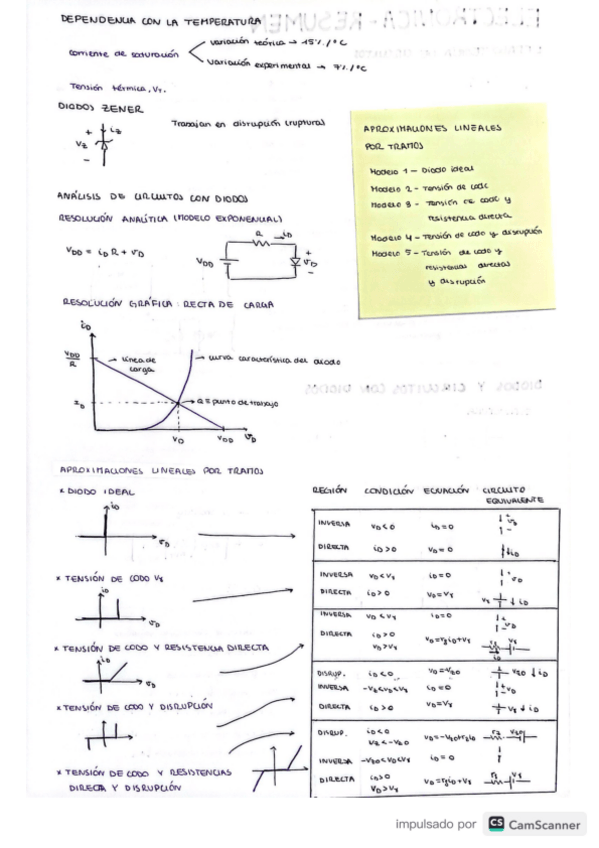 DEPENDENCIA CON LA TEMPERATURA
corriente de saturación
variación teórica → 15%/°C
variación experimental → 7%/°C
Tensión térmica, VT.
DIODOS ZENER
+ iz
Vz
-
Trabajan en disrupción (ruptura)
APROXIMACIONES LINEALES
POR TRAMOS
Modelo 1 - Diodo ideal
Modelo 2 - Tensión de codo
Modelo 3 - Tensión de codo y
resistencia directa
Modelo 4 - Tensión de codo y disrupción
Modelo 5 - Tensión de codo y
resistencias directas
y disrupción
ANÁLISIS DE CIRCUITOS CON DIODOS
RESOLUCIÓN ANALÍTICA (MODELO EXPONENCIAL)
VDD = iD R + vD
R iD
VDD
+
vD
-
RESOLUCIÓN GRÁFICA: RECTA DE CARGA
iD
VDD
R
→ línea de
carga
→ curva característica del diodo
ID
→ Q ≡ punto de trabajo
VD VDD vD
APROXIMACIONES LINEALES POR TRAMOS
* DIODO IDEAL
iD
vD
* TENSIÓN DE CODO Vγ
iD
vD
* TENSIÓN DE CODO Y RESISTENCIA DIRECTA
iD
vD
* TENSIÓN DE CODO Y DISRUPCIÓN
* TENSIÓN DE CODO Y RESISTENCIAS
DIRECTA Y DISRUPCIÓN
REGIÓN CONDICIÓN ECUACIÓN CIRCUITO
EQUIVALENTE
INVERSA vD<0 iD=0
DIRECTA iD>0 vD=0 iD
INVERSA vD<Vγ iD=0 vD
DIRECTA iD>0 vD=Vγ Vγ iD
INVERSA vD<Vγ iD=0 vD
DIRECTA iD>0 vD=rγiD+Vγ
vD>Vγ iD
DISRUP. iD<0 vD=-VZ0 VZ0 iD
INVERSA -VZ<vD<Vγ iD=0 vD
DIRECTA iD>0 vD=Vγ Vγ iD
DISRUP. iD<0 vD=-VZ0+rZiD rZ VZ0
vZ<-VZ0
INVERSA -VZ0<vD<Vγ iD=0
DIRECTA iD>0 vD=rγiD+Vγ
vD>Vγ
impulsado por CS CamScanner